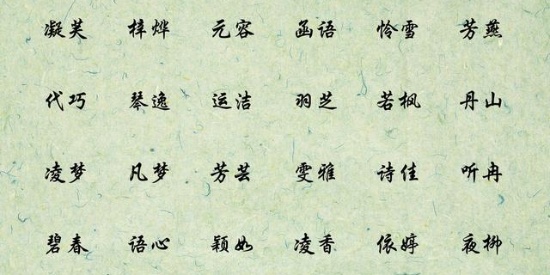 凝芙 梓烨 元容 函语 怜雪 芳燕
代巧 琴逸 运洁 羽芝 若枫 丹山
凌梦 凡梦 芳芸 雯雅 诗佳 听冉
碧春 语心 颖如 凌香 依婷 夜柳